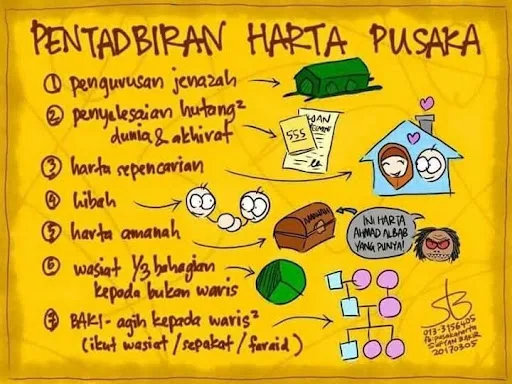 PENTADBIRAN HARTA PUSAKA
1 pengurusan jenazah
2 penyelesaian hutang²
dunia & akhirat
555
3 harta sepencarian
4 hibah
5 harta amanah
AMANAH
INI HARTA
AHMAD ALBAB
YANG PUNYA!
6 wasiat 1/3 bahagian
kepada bukan waris
7 BAKI - agih kepada waris²
(ikut wasiat / sepakat / faraid)
013-3156405
fb:pusakaharta
SUFYAN BAKIR
20170305